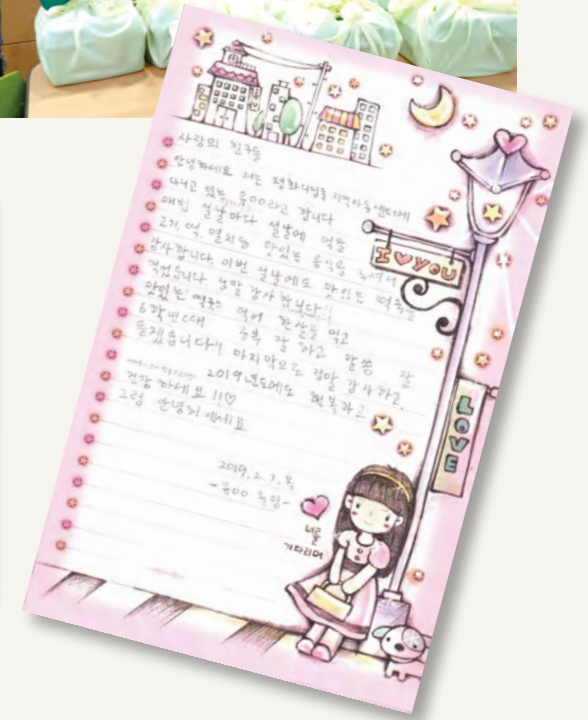 사랑의 친구들
안녕하세요 저는 평화나눔 지역아동센터에
다니고 있는 윤OO라고 합니다
매번 설날마다 설날에 먹을
고기, 떡, 멸치등 맛있는 음식을 주셔서
감사합니다 이번 설날에도 맛있는 떡국을
먹었습니다 정말 감사합니다!!
맛있는 떡국도 먹어 한살을 먹고
6학년인데 공부 잘 하고 말씀 잘
듣겠습니다!! 마지막으로 정말 감사하고,
2019년도에도 행복하고
건강 하세요!!♡
그럼 안녕히계세요
2019. 2. 7. 목
-윤OO 올림-
I♥YOU
LOVE
너를
기다리며